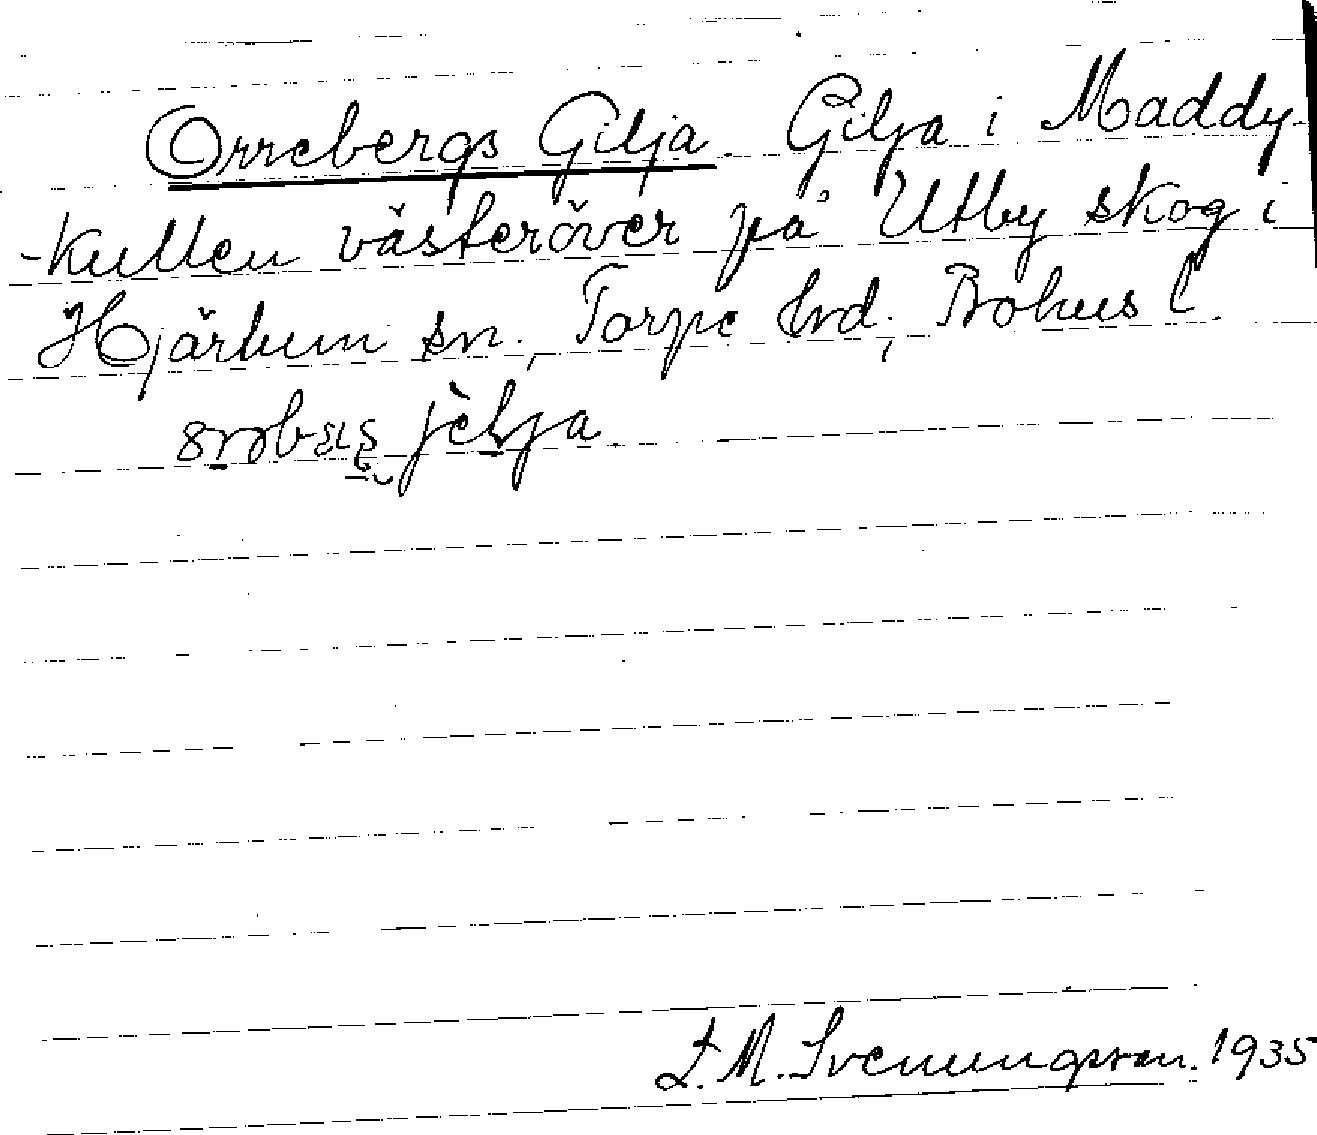 Orrebergs Gilja. Gilja i Maddy-
-kullen västeröver på Utby skog i
Hjärtum sn., Torpe hrd., Bohus l.
jèlja.
F. M. Svenungsson. 1935